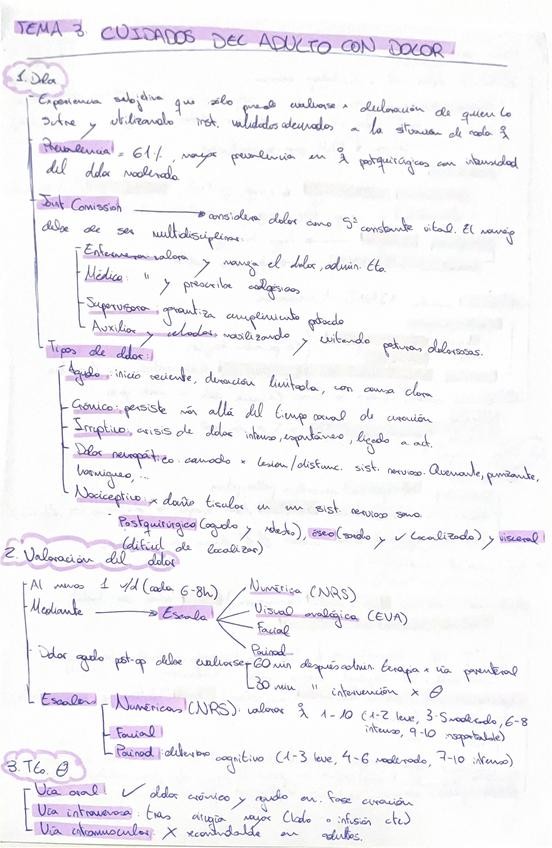 TEMA 3 CUIDADOS DEL ADULTO CON DOLOR
1. Dlor
Experiencia subjetiva que sólo puede evaluarse x declaración de quien lo
sufre y utilizando inst. validados adecuados a la situación de cada
Prevalencia = 61%, mayor prevalencia en postquirúgicos con intensidad
del dolor moderado
Joint Comission → considera dolor como 5ª constante vital. El manejo
debe de ser multidisciplinar:
Enfermera valora y maneja el dolor, admin. tto.
Médico: " y prescribe analgésicos
Supervisora garantiza cumplimiento protocolo
Auxiliar y celador, movilizando y evitando posturas dolorosas.
Tipos de dolor:
Agudo: inicio reciente, duración limitada, con causa clara
Crónico: persiste más allá del tiempo normal de curación
Irruptivo: crisis de dolor intenso, espontáneo, ligado a act.
Dolor neuropático: causado x lesión/disfunc. sist. nervioso. Quemante, punzante,
hormigueo, ...
Nociceptivo: x daño tisular en un sist. nervioso sano.
Postquirúrgico (agudo y ), óseo (sordo y ✓ localizado) y visceral
(difícil de localizar)
2. Valoración del dolor
Al menos 1 v/d (cada 6-8h)
Mediante → Escala
Numérica (NRS)
Visual analógica (EVA)
Facial
Painad
Dolor agudo post-op debe evaluarse
60 min después admin. terapia x vía parenteral
30 min " intervención x θ
Escalas
Numéricas (NRS): valorar 1-10 (1-2 leve, 3-5 moderado, 6-8
intenso, 9-10 insoportable)
Facial
Painad: deterioro cognitivo (1-3 leve, 4-6 moderado, 7-10 intenso)
3. Tto. θ
Vía oral ✓ dolor crónico y agudo en fase curación
Vía intravenosa: tras cirugía mayor (bolo o infusión ctc)
Vía intramuscular: X recomendable en adultos.